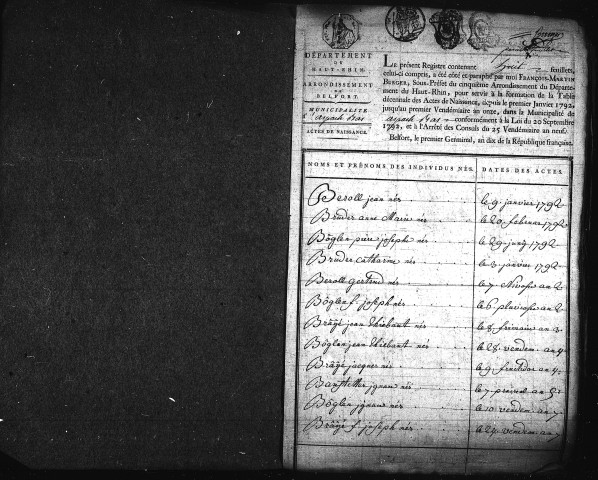 DÉPARTEMENT
DU
HAUT-RHIN.
ARRONDISSEMENT
DE
BELFORT.
MUNICIPALITÉ
ACTES DE NAISSANCE.
LE présent Registre contenant huit feuillets,
celui-ci compris, a été coté et paraphé par moi FRANÇOIS-MARTIN
BERGER, Sous-Préfet du cinquième Arrondissement du Départe-
ment du Haut-Rhin, pour servir à la formation de la Table
décennale des Actes de Naissance, depuis le premier Janvier 1792,
jusqu'au premier Vendémiaire an onze, dans la Municipalité de
conformément à la Loi du 20 Septembre
1792, et à l'Arrêté des Consuls du 25 Vendémiaire an neuf.
Belfort, le premier Germinal, an dix de la République française.
NOMS ET PRÉNOMS DES INDIVIDUS NÉS. DATES DES ACTES.
Beroll jean nés le 9 janvier 1792
Bruder anne Marie nés le 20 februar 1792
Böglen pierre joseph nés le 29 1792
Bruder catharine nés le 3 janvier 1792
Beroll gertrud nés le 7 Nivose an 2
Böglen f. joseph nés le 6 pluviose an 2
Brägi jean thiebaut nés le 8 frimaire an 3
Böglen jean thiebaut nés le 28 vendem an 4
Brägi jacques nés le 9 fructidor an 4
ignace nés le 7 an 5
Böglen ignace nés le 10 vendem an 7
Brägi f. joseph nés le 24 vendem an 7